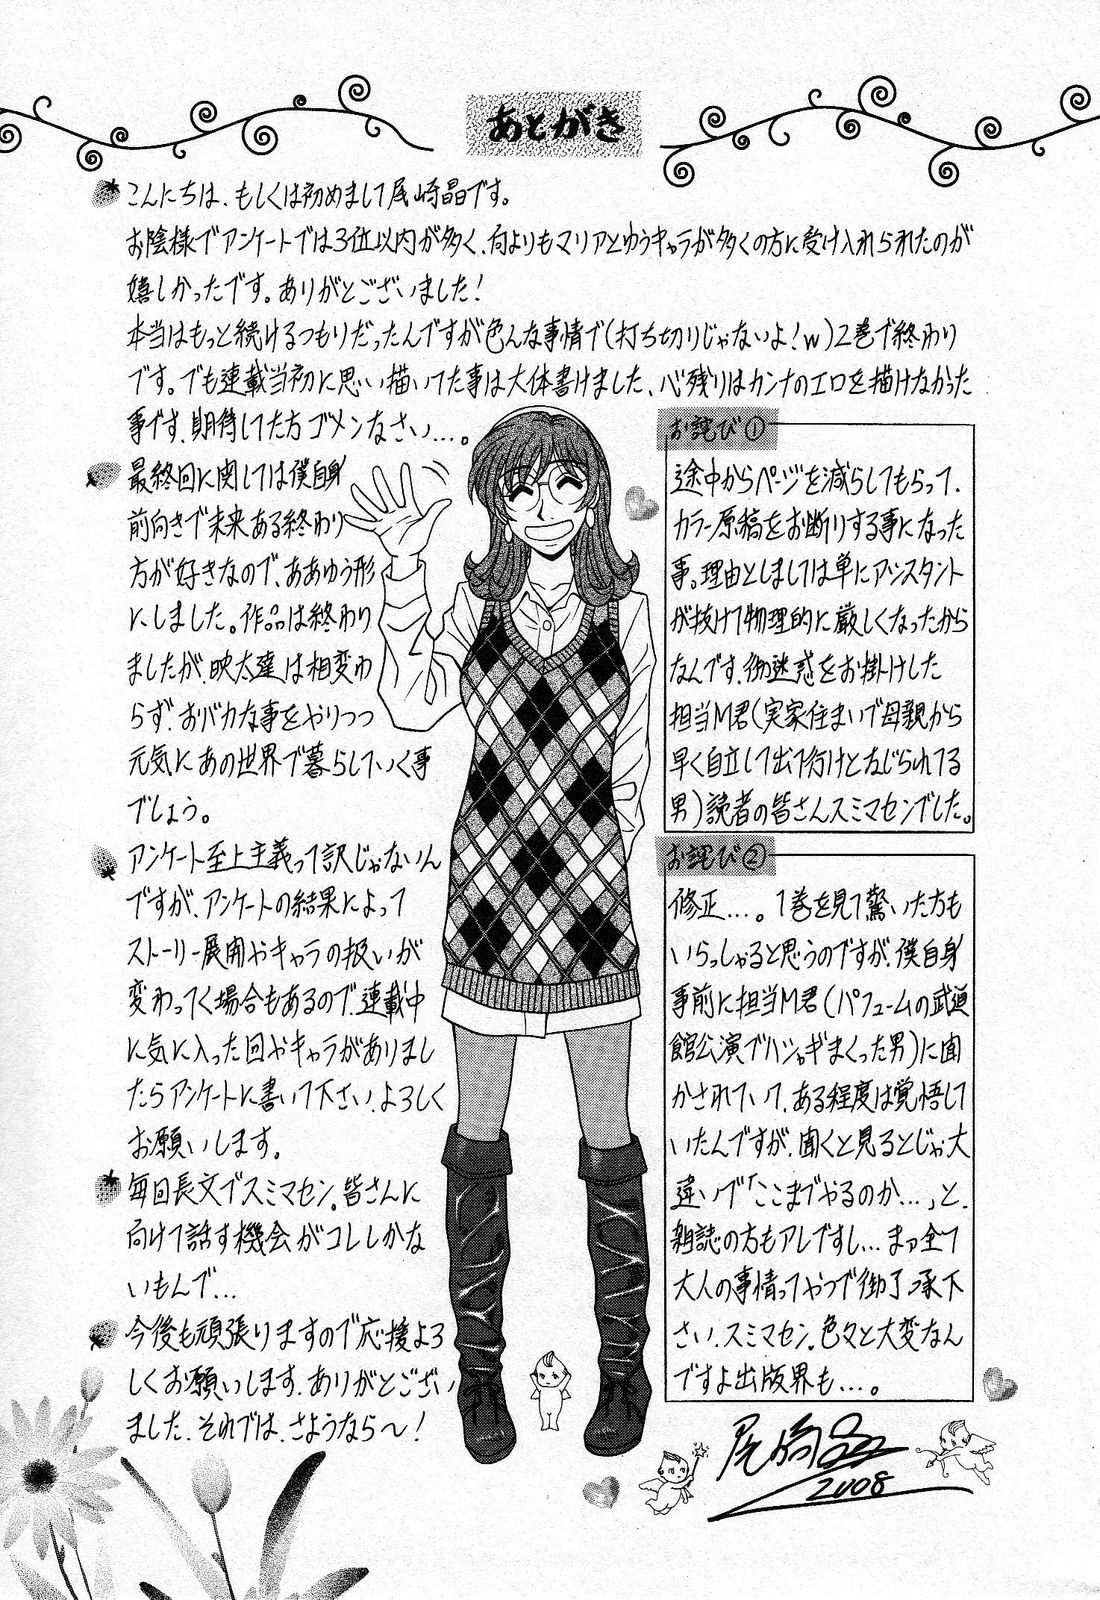 あとがき
こんにちは、もしくは初めまして尾崎晶です。
お陰様でアンケートでは3位以内が多く、何よりもマリアとゆうキャラが多くの方に受け入れられたのが
嬉しかったです。ありがとございました！
本当はもっと続けるつもりだったんですが色んな事情で(打ち切りじゃないよ！w)2巻で終わり
です。でも連載当初に思い描いてた事は大体書けました、心残りはカンナのエロを描けなかった
事です、期待してた方ゴメンなさい…。
最終回に関しては僕自身
前向きで未来ある終わり
方が好きなので、ああゆう形
にしました。作品は終わり
ましたが、映太達は相変わ
らず、おバカな事をやりつつ
元気にあの世界で暮らしていく事
でしょう。
アンケート至上主義って訳じゃないん
ですが、アンケートの結果によって
ストーリー展開やキャラの扱いが
変わってく場合もあるので、連載中
に気に入った回やキャラがありまし
たらアンケートに書いて下さい、よろしく
お願いします。
毎回長文でスミマセン。皆さんに
向けて話す機会がコレしかな
いもんで…
今後も頑張りますので応援よろ
しくお願いします、ありがとござい
ました、それでは、さようなら〜！
お詫び①
途中からページを減らしてもらって、
カラー原稿をお断りする事になった
事。理由としましては単にアシスタント
が抜けて物理的に厳しくなったから
なんです、御迷惑をお掛けした
担当M君(実家住まいで母親から
早く自立して出て行けとなじられてる
男)読者の皆さんスミマセンでした。
お詫び②
修正…。1巻を見て驚いた方も
いらっしゃると思うのですが、僕自身
事前に担当M君(パフュームの武道
館公演でハシャギまくった男)に聞
かされていて、ある程度は覚悟して
いたんですが、聞くと見るとじゃ大
違いで「ここまでやるのか…」と、
雑誌の方もアレですし…まァ全て
大人の事情ってやつで御了承下
さい、スミマセン。色々と大変なん
ですよ出版界も…。
尾崎晶
2008